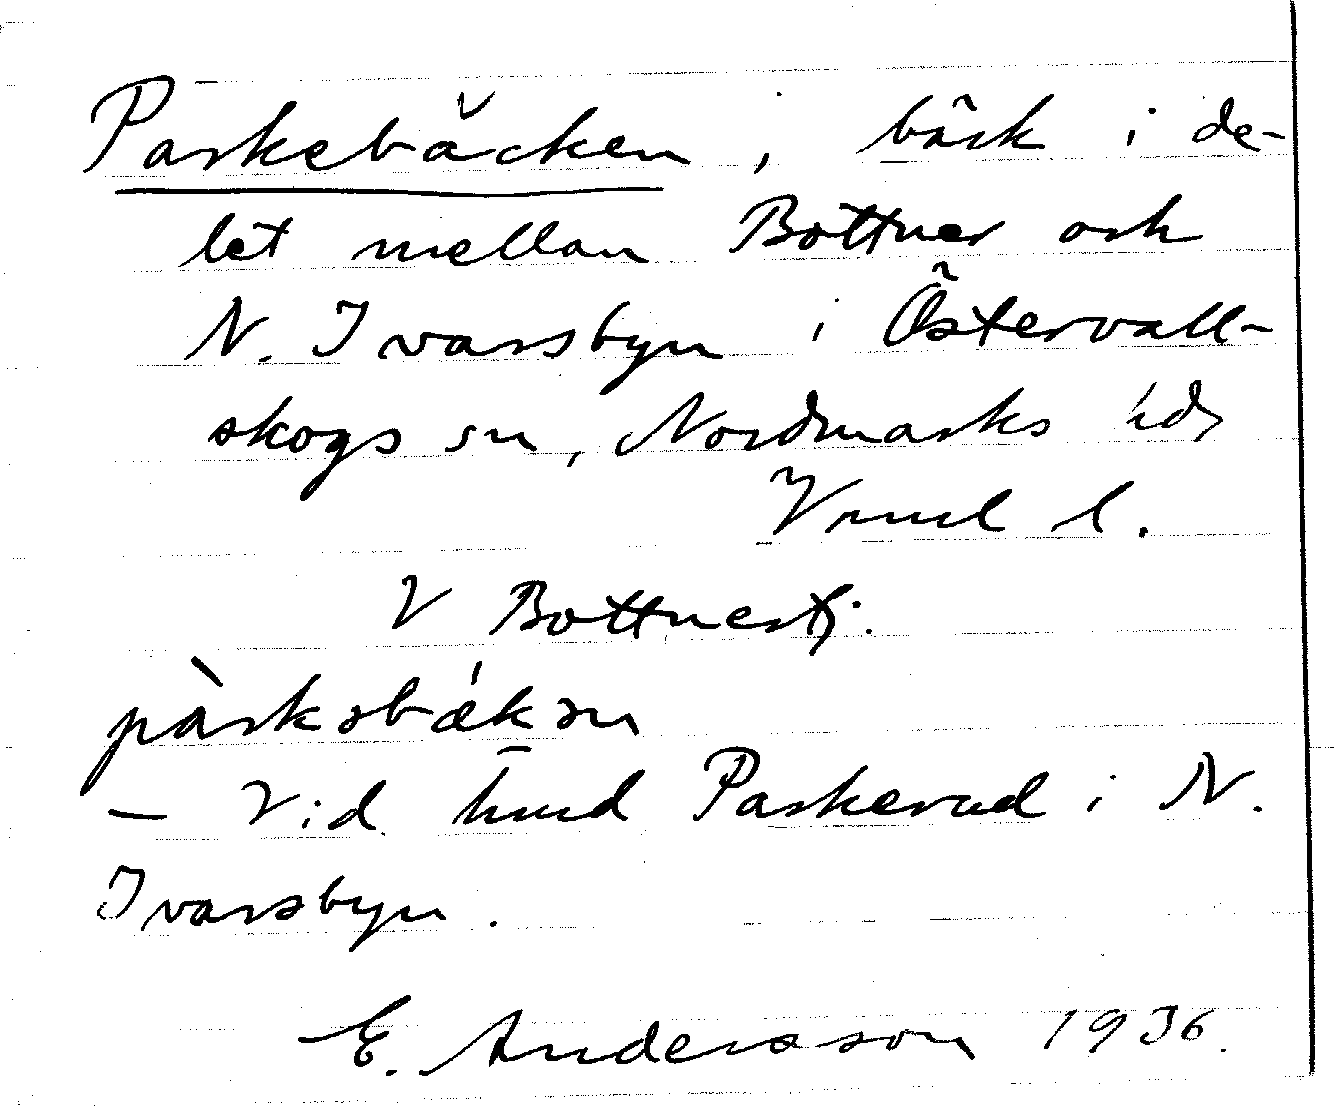 Paskebäcken, bäck i de-
let mellan Bottner och
N. Ivarsbyn i Östervall-
skogs sn, Nordmarks hd,
Vrml l.
V Bottnestj.
pàskəbǽkən
– Vid hmd Paskerud i N.
Ivarsbyn.
E. Andersson 1936.